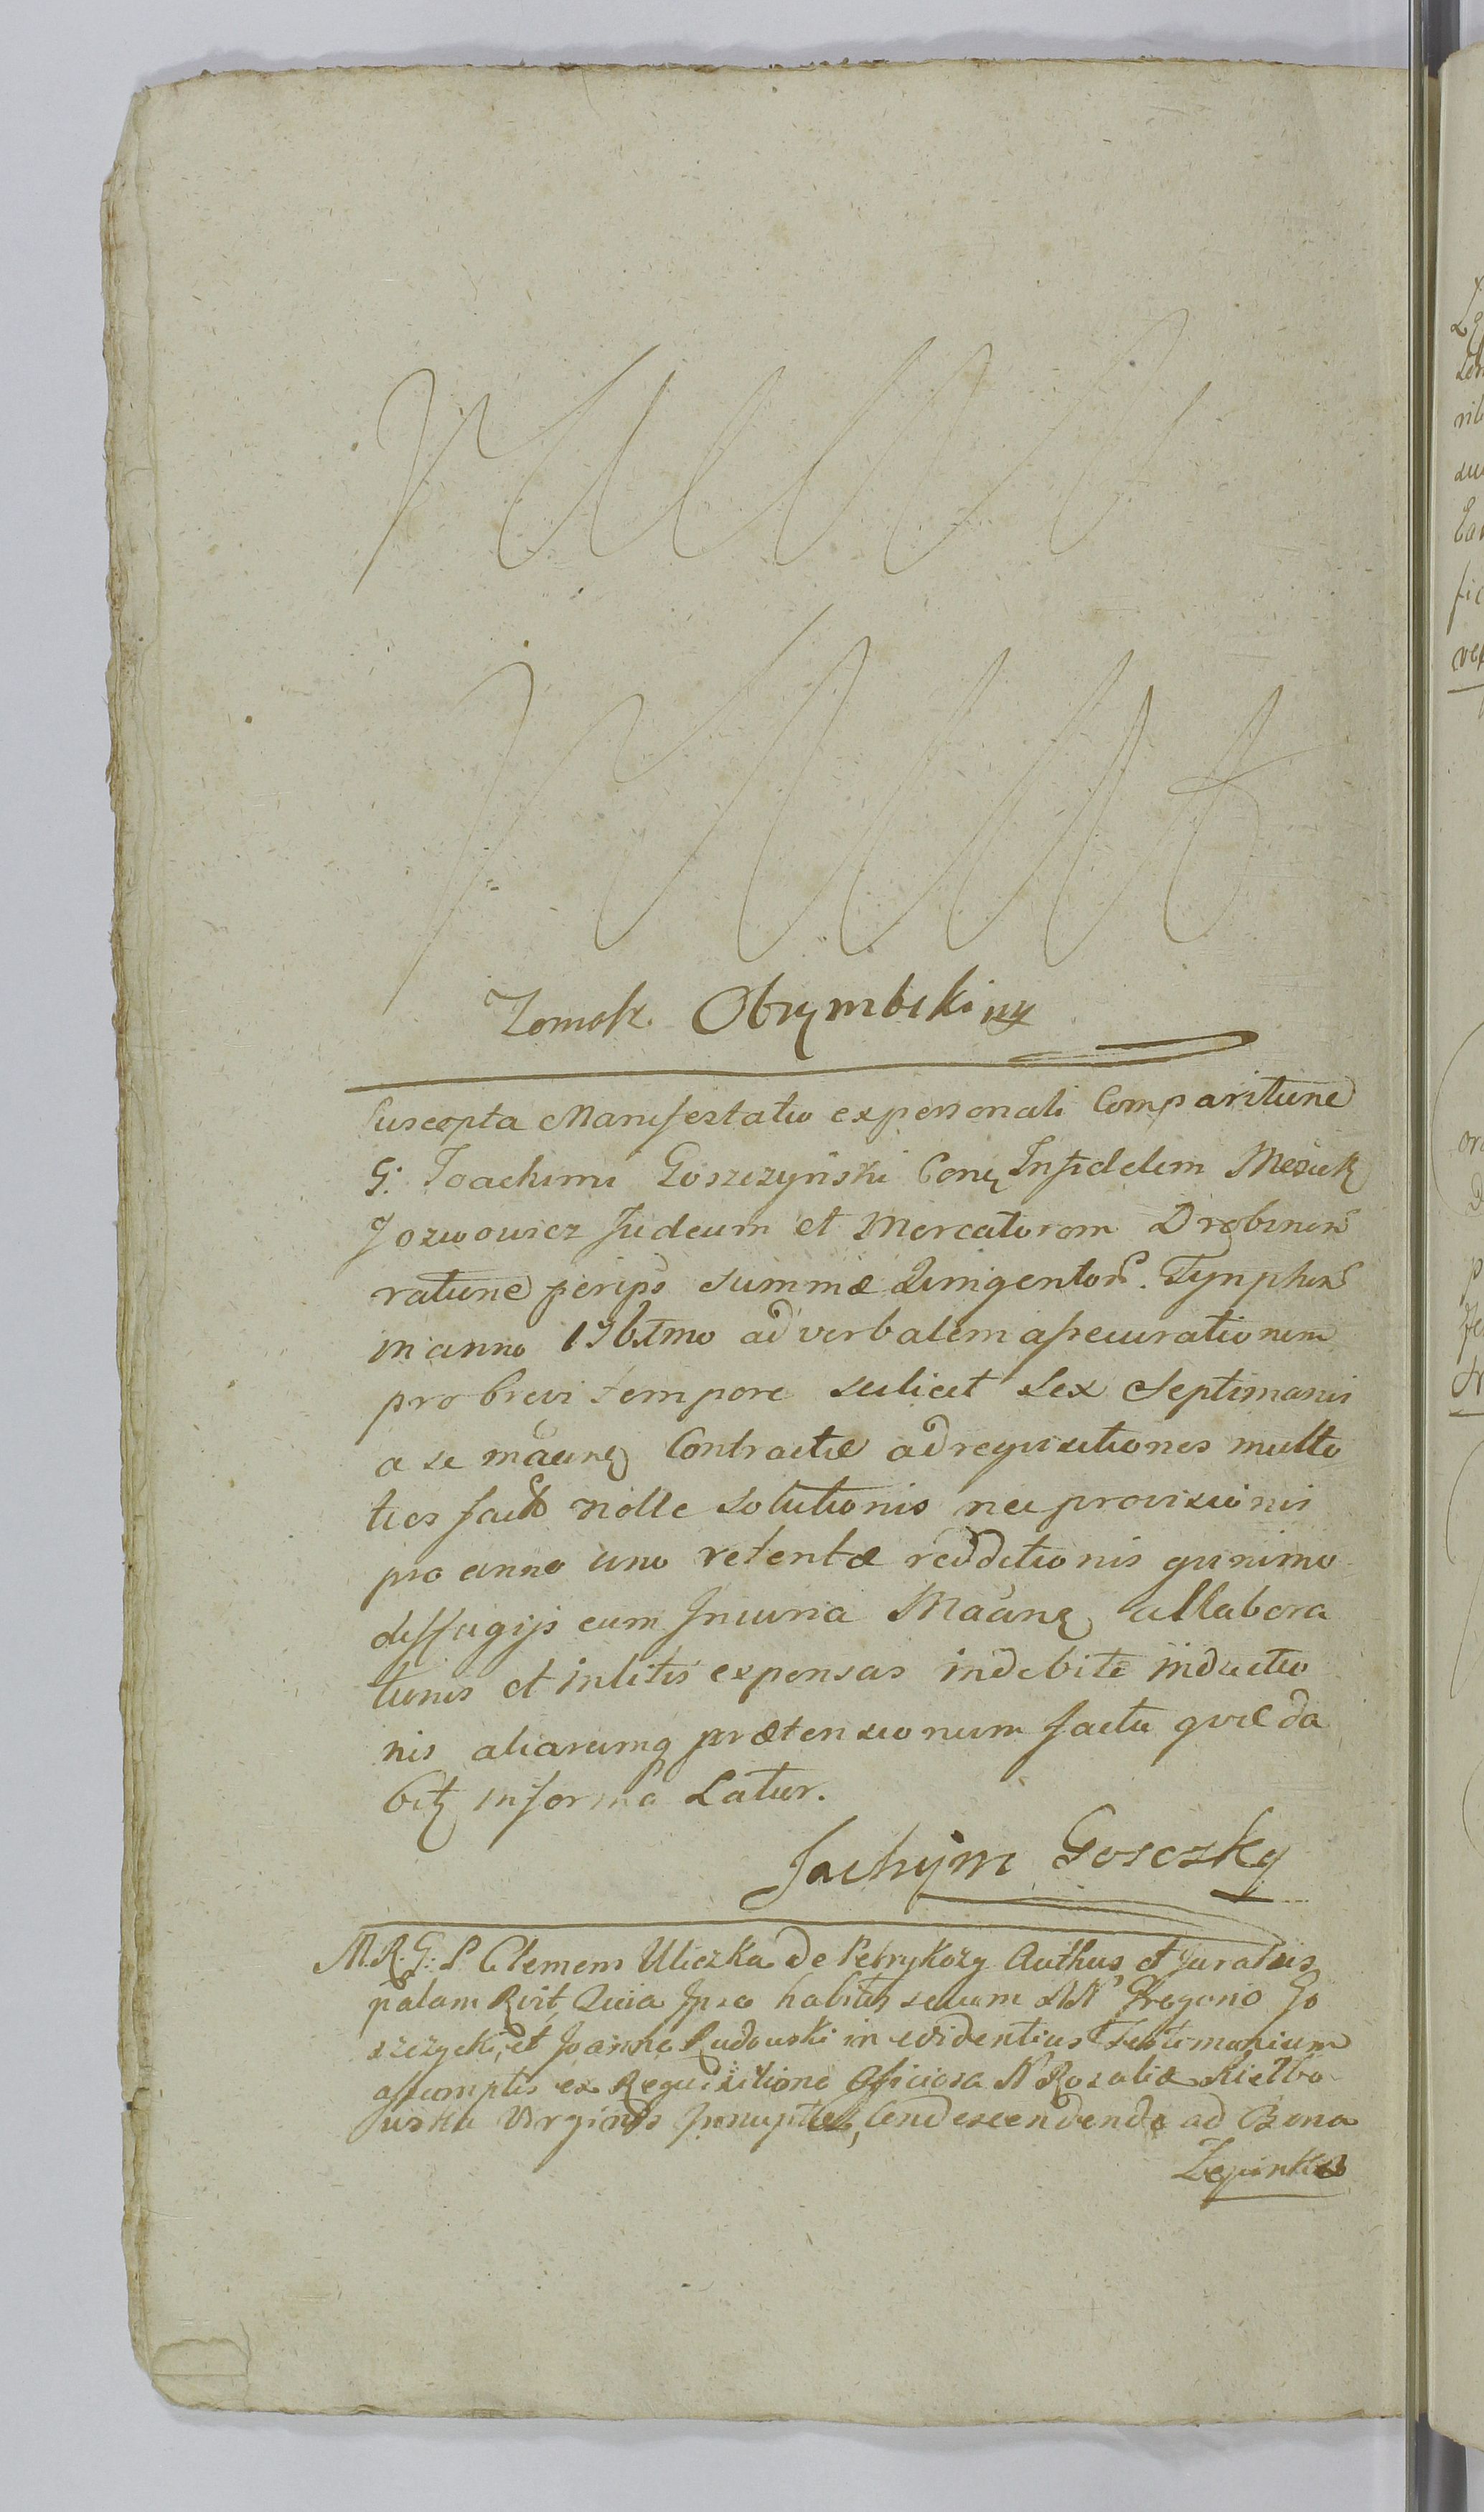 Tomasz Obrymbski mp
Suscepta Manifestatio ex personali Comparitione
G: Joachimi Goszczyński Con Infidelem Mesiek
Jozwowicz Judeum et Mercatorem Drobinens
ratione perips summæ Quingentor. Tynphor
in anno 176 tmo ad verbalem assecurationem
pro brevi tempore scilicet sex Septimanis
a se Contractæ ad requisitiones multo
ties fact nolle solutionis nec provisionis
pro anno uno retentæ redditionis qui nimo
diffugijs cum Iniuria allabora
tionis et in litis expensas indebite inductio
nis aliarumq prætensionum factu quæ da
bit in forma Latior.
Jachym Gosczky
M.R.G: S. Clemens Uliczka de Petrykozy Authus et Juratus
palam Rvit Quia Ipse habitis secum NN Gregorio Go
szczycki, et Joanne Rudowski in evidentius Testimonium
assumptis ex Requisitione Officiosa N Rozaliæ Kiełbo
wska Virginis Innuptæ, Condescendendo ad Bona